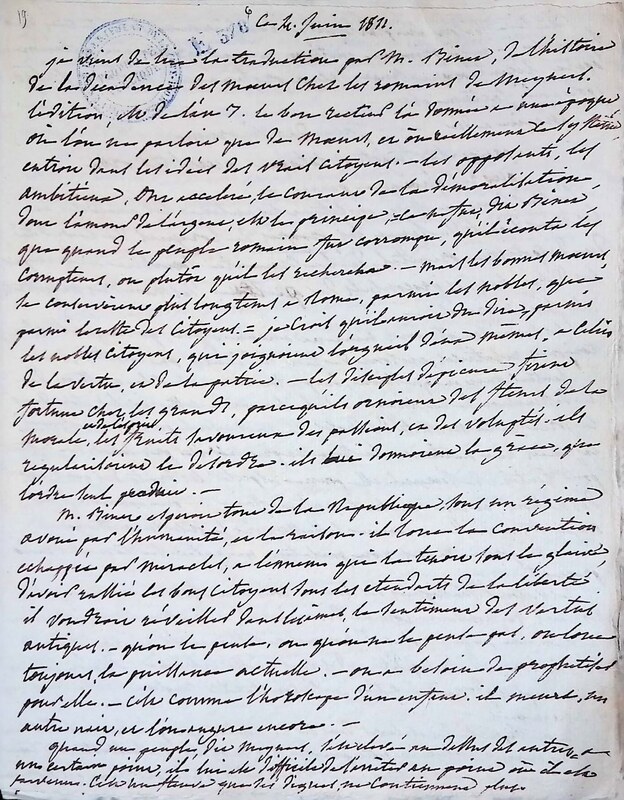 19
R 378
Ce 4. Juin 1811.
je viens de lire la traduction par M. Binet, de l'histoire
de la décadence des mœurs chez les romains de Meyners.
l'édition, est de l'an 7. le bon recteur l'a donnée a une époque
où l'on ne parloit que de Mœurs, et où réellement
entroit dans les idées des vrais citoyens. - les opposants, les
ambitieux, ont accéléré, le concours de la démoralisation
dont l'amour de l'argent, est le principe, Binet
que quand le peuple romain fut corrompu, qu'il écouta les
corrupteurs, ou plutôt qu'il les rechercha. - mais les bonnes mœurs
se conservèrent plus longtems a Rome, parmi les nobles, que
parmi le reste des Citoyens. = je crois qu'il auroit du dire, parmi
les nobles citoyens, qui joignoient l'orgueil d'eux mêmes, a celui
de la vertu, et de la patrie. - les disciples d'épicure firent
fortune chez les grands, parcequ'ils ornoient des fleurs de la
morale, les fruits savoureux des passions, et des voluptés. ils
régularisoient le désordre. ils donnoient la grâce, que
l'ordre seul produit. -
M. Binet espéroit tout de la République, sous un régime
avoué par l'humanité, et la raison. il loue la convention
échappée par miracle, a l'ennemi que la tenoit sous le glaive,
d'avoir rallié les bons citoyens sous les étendarts de la liberté
il voudroit réveiller dans les âmes, le sentiment des vertus
antiques. - qu'on le pense, ou qu'on ne le pense pas, on loue
toujours, la puissance actuelle. - on a besoin de prophétiser
pour elle. - c'est comme l'horoscope d'un enfant. il meurt, un
autre nait, et l'on augure encore. -
quand un peuple, dit Meyners, s'est élevé au dessus des autres, a
un certain point, il lui est difficile de s'arrêter au point où il est
parvenu. C'est un fleuve que des digues, ne contiennent plus